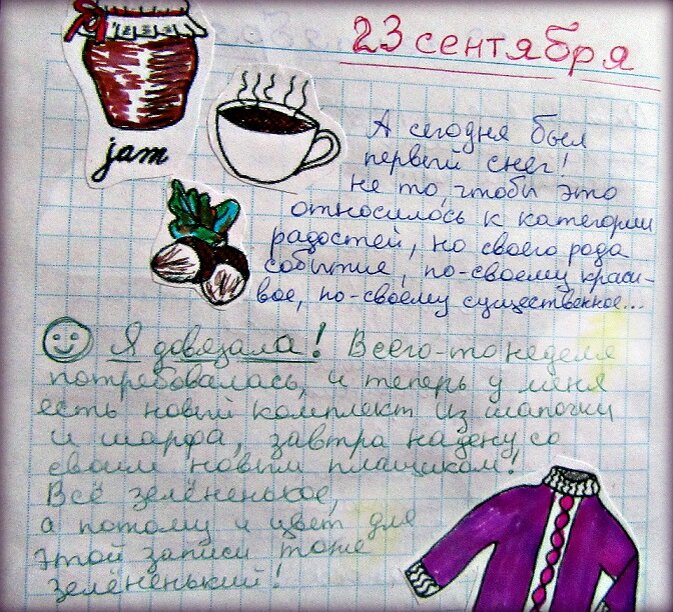 23 сентября
jam
А сегодня был
первый снег!
не то, чтобы это
относилось к категории
радостей, но своего рода
событие, по-своему краси-
вое, по-своему существенное...
Я довязала! Всего-то неделя
потребовалась, и теперь у меня
есть новый комплект из шапочки
и шарфа, завтра надену со
своим новым плащиком!
Всё зелёненькое,
а потому и цвет для
этой записи тоже
зелёненький!